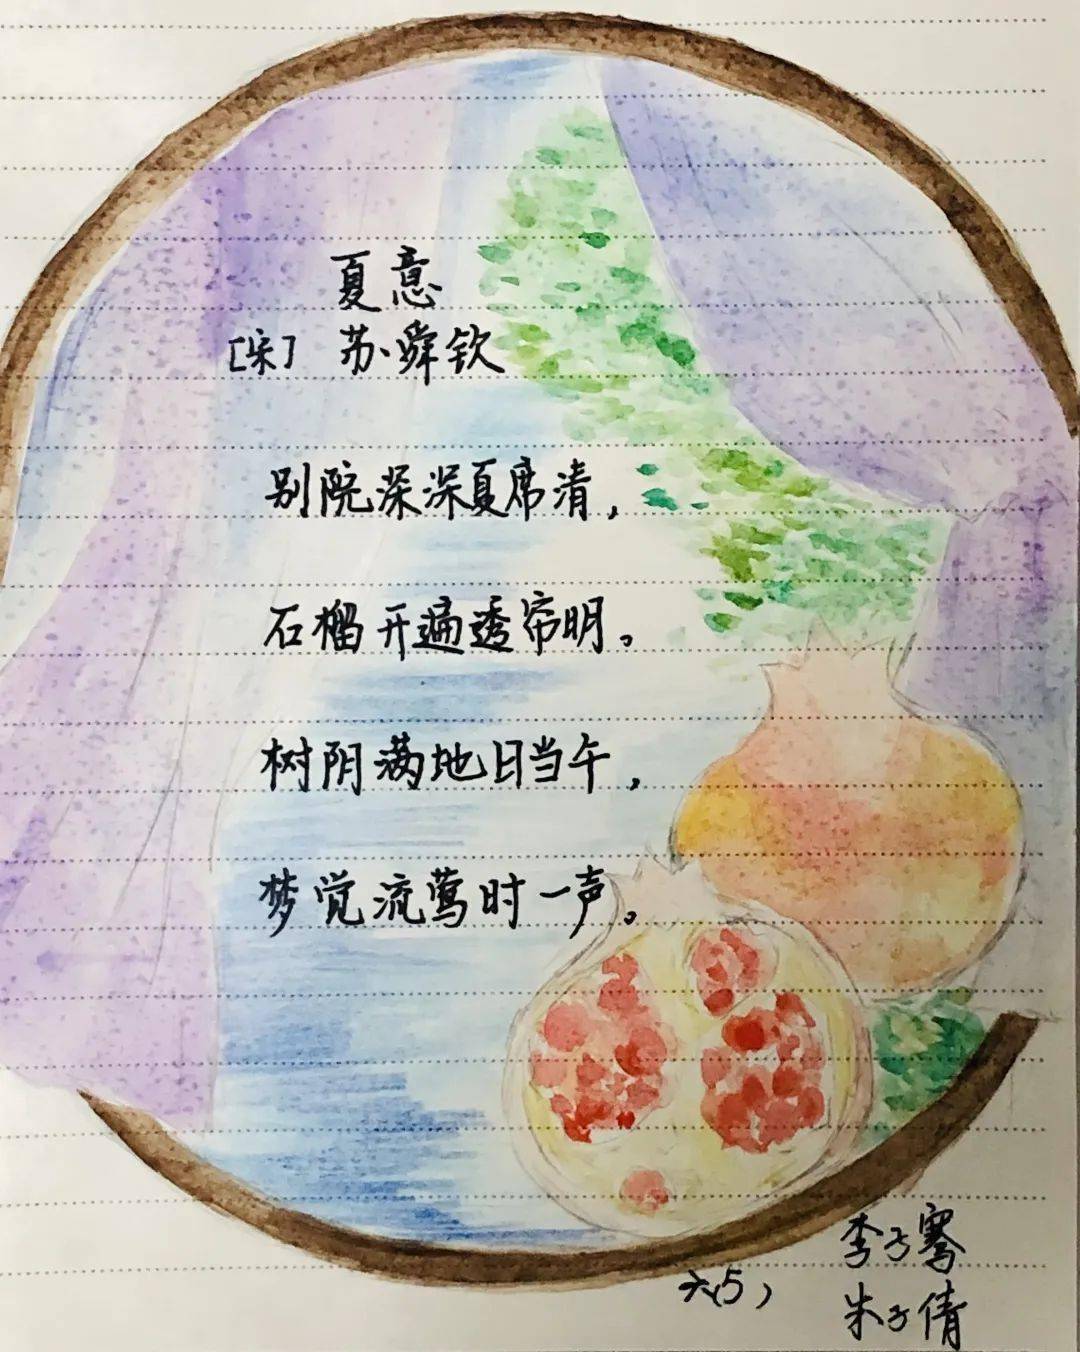 夏意
[宋] 苏舜钦
别院深深夏席清，
石榴开遍透帘明。
树阴满地日当午，
梦觉流莺时一声。
六(5)
李子骞
朱子倩